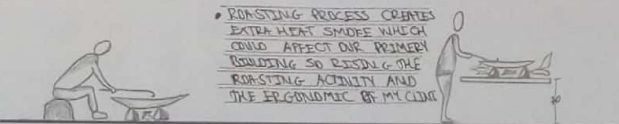 • ROASTING PROCESS CREATES
EXTRA HEAT SMOKE WHICH
COULD AFFECT OUR PRIMERY
BUILDING SO RISING THE
ROASTING ACTIVITY AND
THE ERGONOMIC OF MY CLIENT